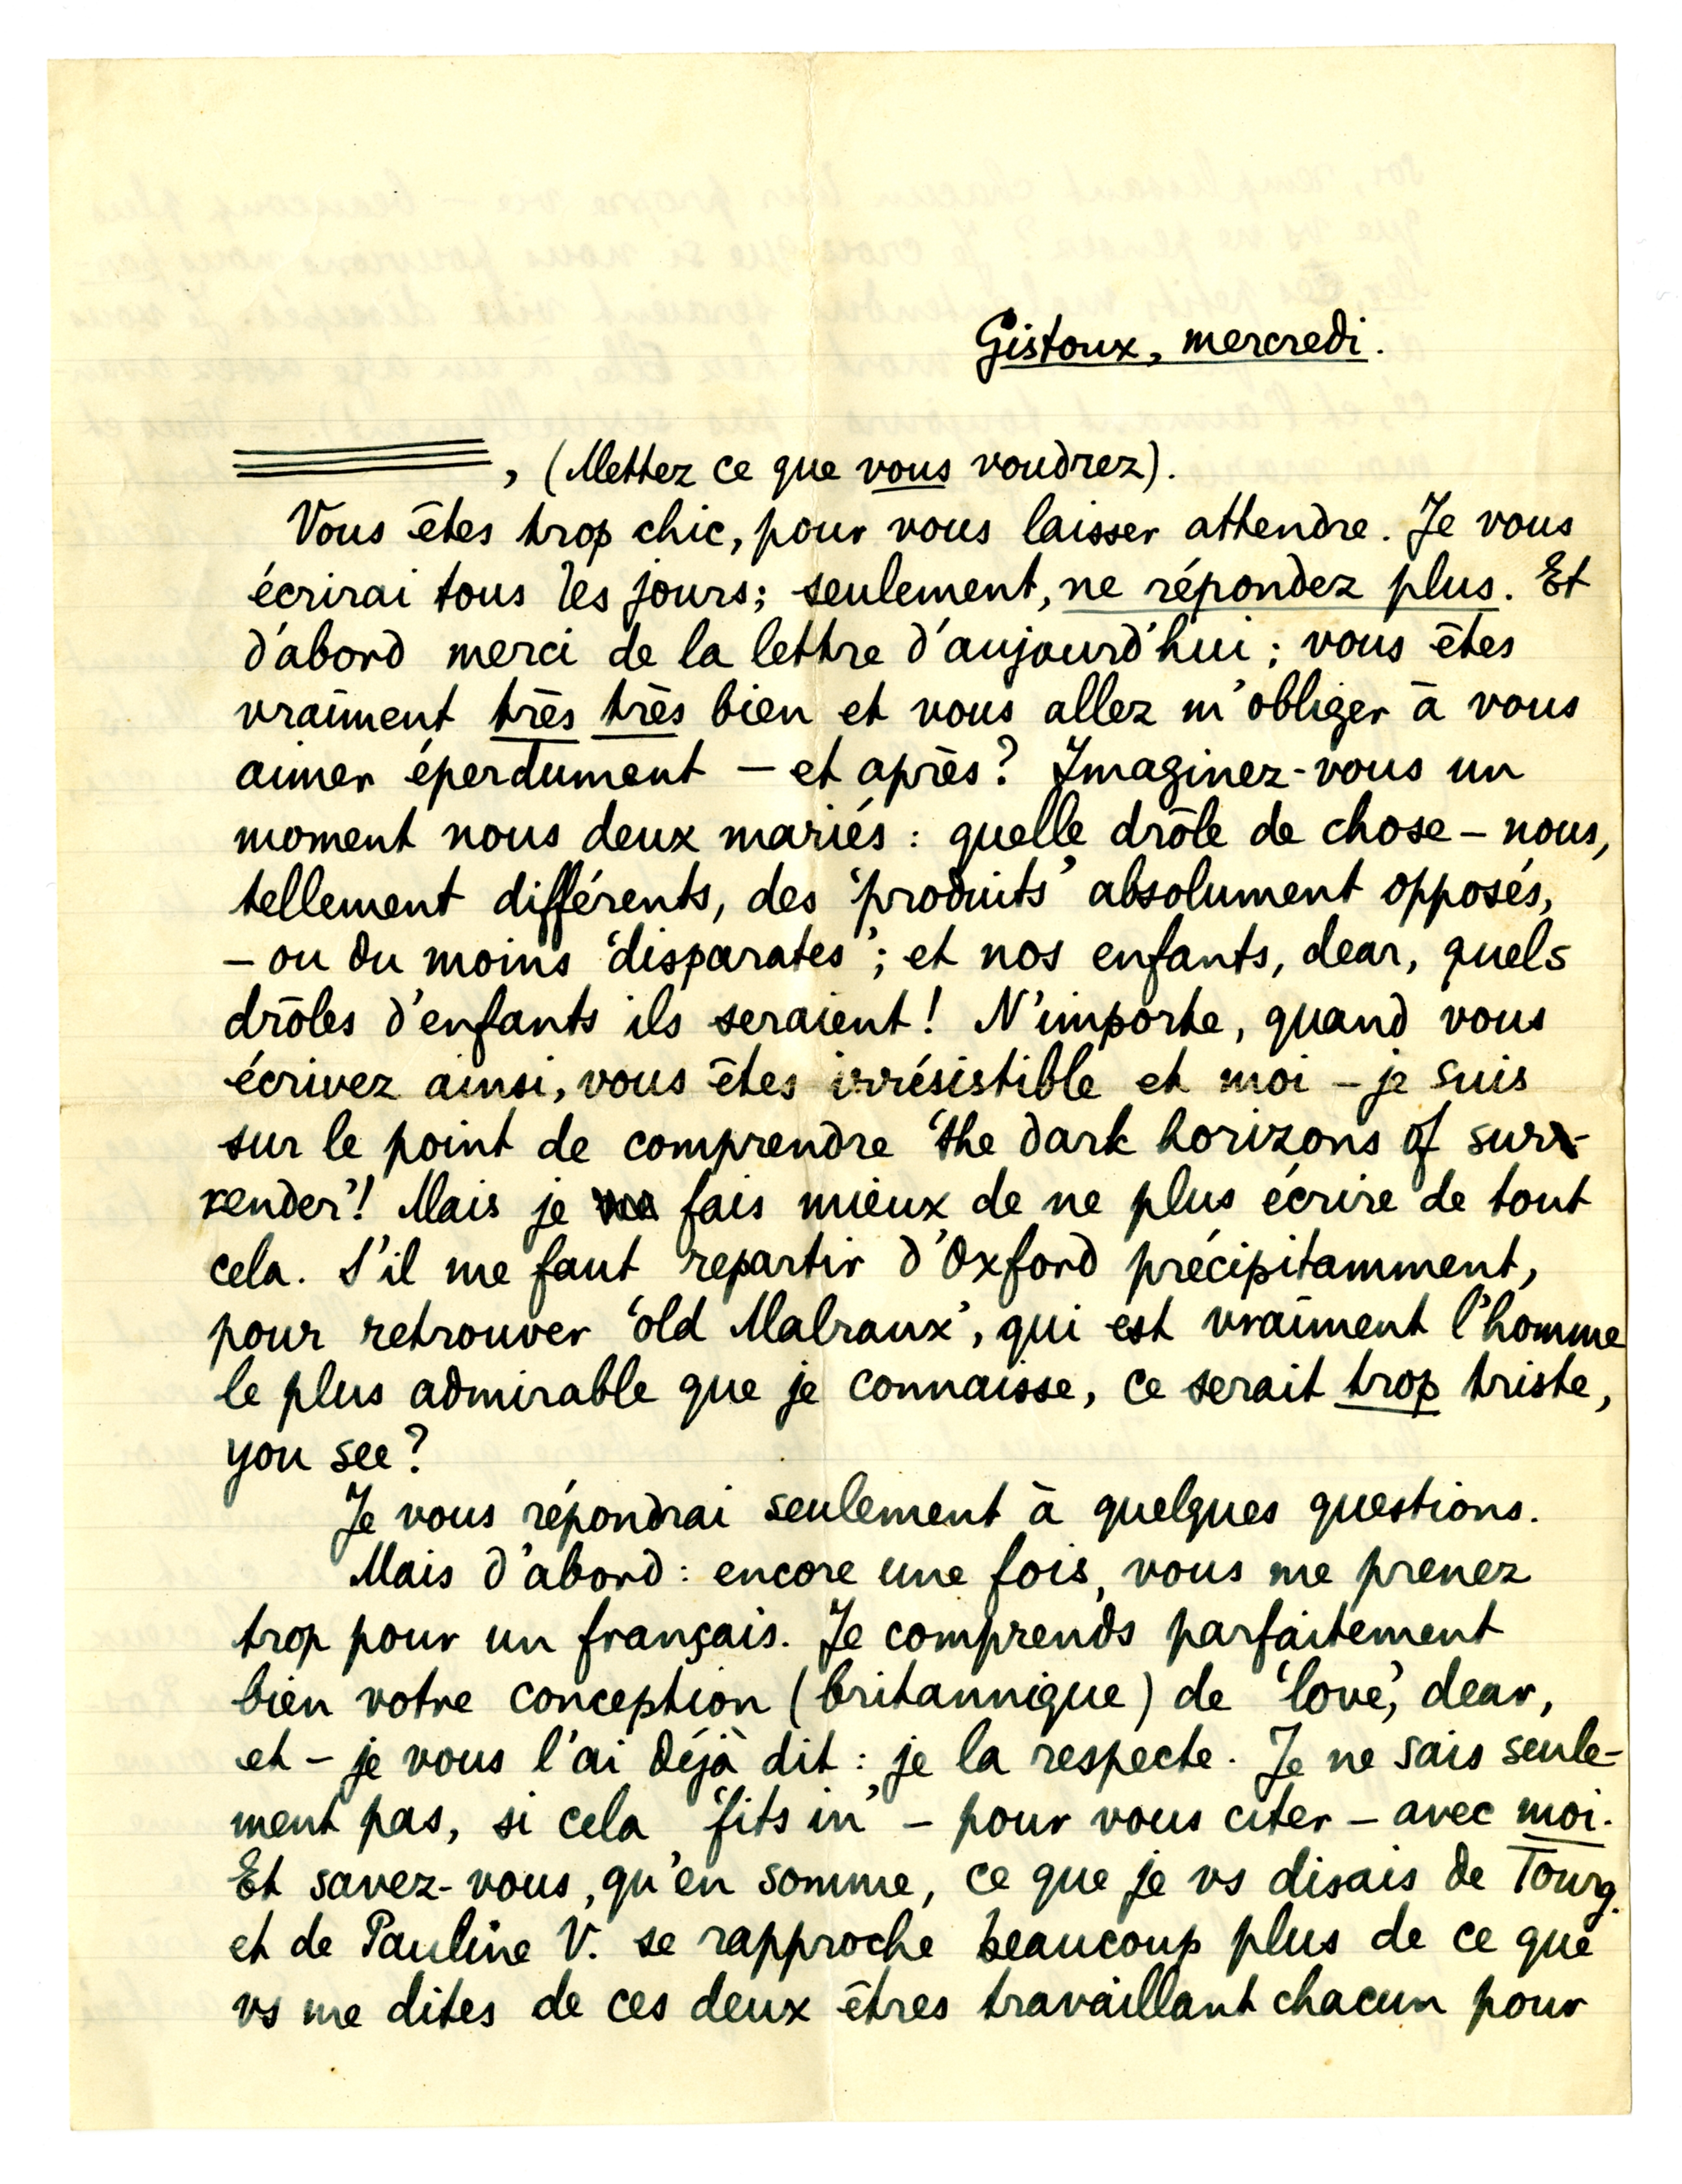 Gistoux, mercredi.
, (Mettez ce que vous voudrez).
Vous êtes trop chic, pour vous laisser attendre. Je vous
écrirai tous les jours; seulement, ne répondez plus. Et
d'abord merci de la lettre d'aujourd'hui; vous êtes
vraiment très très bien et vous allez m'obliger à vous
aimer éperdument – et après? Imaginez-vous un
moment nous deux mariés : quelle drôle de chose – nous,
tellement différents, des 'produits' absolument opposés,
– ou du moins 'disparates'; et nos enfants, dear, quels
drôles d'enfants ils seraient! N'importe, quand vous
écrivez ainsi, vous êtes irrésistible et moi – je suis
sur le point de comprendre 'the dark horizons of sur-
render'! Mais je fais mieux de ne plus écrire de tout
cela. S'il me faut repartir d'Oxford précipitamment,
pour retrouver 'old Malraux', qui est vraiment l'homme
le plus admirable que je connaisse, ce serait trop triste,
you see?
Je vous répondrai seulement à quelques questions.
Mais d'abord : encore une fois, vous me prenez
trop pour un français. Je comprends parfaitement
bien votre conception (britannique) de 'love', dear,
et – je vous l'ai déjà dit : je la respecte. Je ne sais seule-
ment pas, si cela 'fits in' – pour vous citer – avec moi.
Et savez-vous, qu'en somme, ce que je vs disais de Tourg.
et de Pauline V. se rapproche beaucoup plus de ce que
vs me dites de ces deux êtres travaillant chacun pour